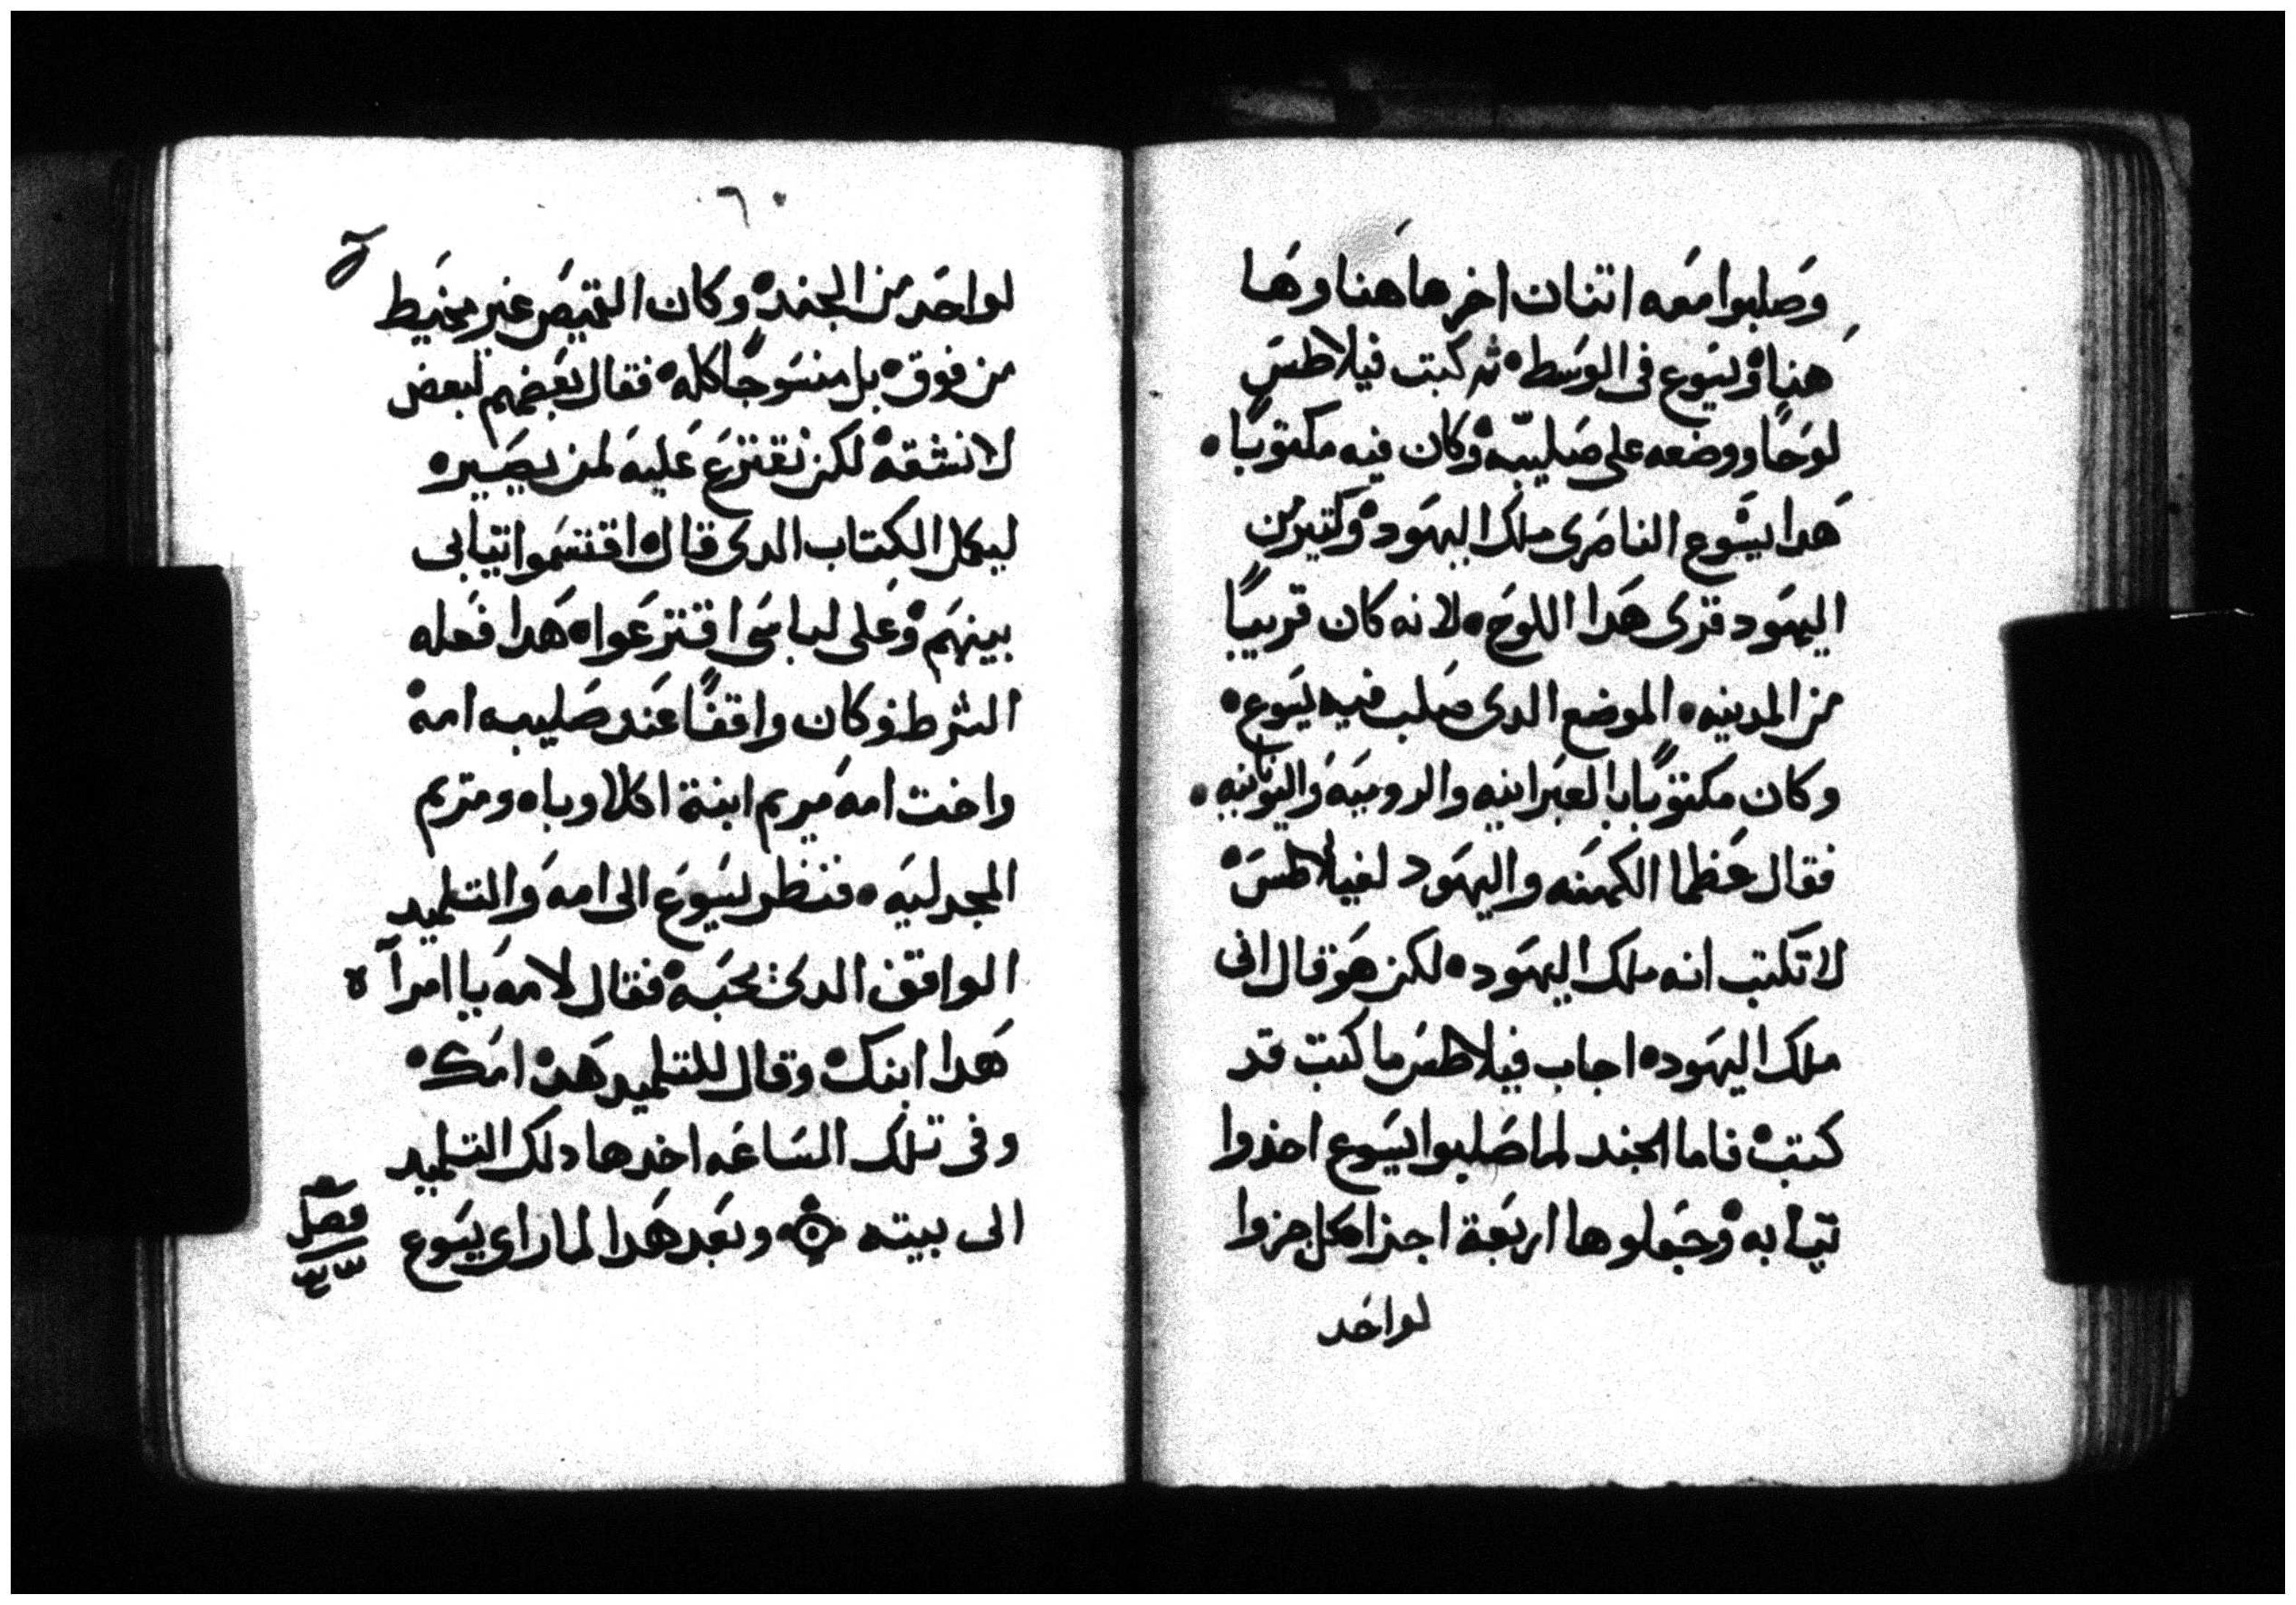 وصلبوا معه اتنان اخر هاهنا وها
هنا ويسوع فى الوسط ثم كتب فيلاطس
لوحًا ووضعه على صليبه وكان فيه مكتوبًا
هدا يسوع الناصرى ملك اليهود وكتير من
اليهود قرى هدا اللوح لانه كان قريبًا
من المدينه الموضع الدى صلب فيه يسوع
وكان مكتوبًا بالعبرانيه والروميه واليونانيه
فقال عظما الكهنه واليهود لفيلاطس
لا تكتب انه ملك اليهود لكن هو قال انى
ملك اليهود اجاب فيلاطس ما كتبت قد
كتبت فاما الجند لما صلبوا يسوع اخذوا
تيابه وجعلوها اربعة اجزا لكل جزوا
لواحد
٦٠
لواحد من الجند وكان القميص غير مخيط
من فوق بل منسوجًا كله فقال بعضهم لبعض
لا نشقه لكن نقترع عليه لمن يصير
ليكمل الكتاب الدى قال اقتسموا تيابى
بينهم وعلى لباسى اقترعوا هدا فعله
الشرط وكان واقفًا عند صليبه امه
واخت امه مريم ابنة اكلاوبا ومريم
المجدليه فنظر يسوع الى امه والتلميد
الواقف الدى يحبه فقال لامه يا امرآة
هدا ابنك وقال للتلميد هده امك
وفى تلك الساعه اخدها دلك التلميد
الى بيته وبعد هدا لما راى يسوع
فصل